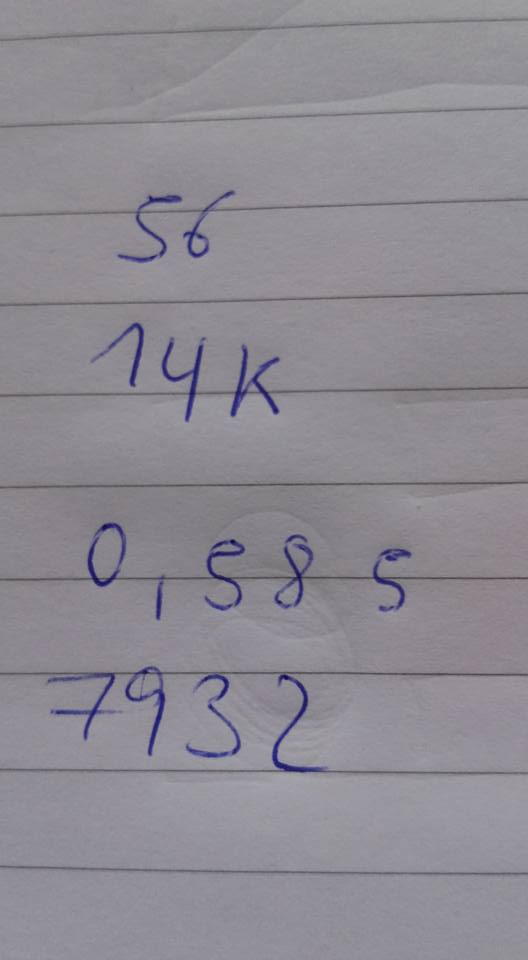 56
14K
0,585
7932